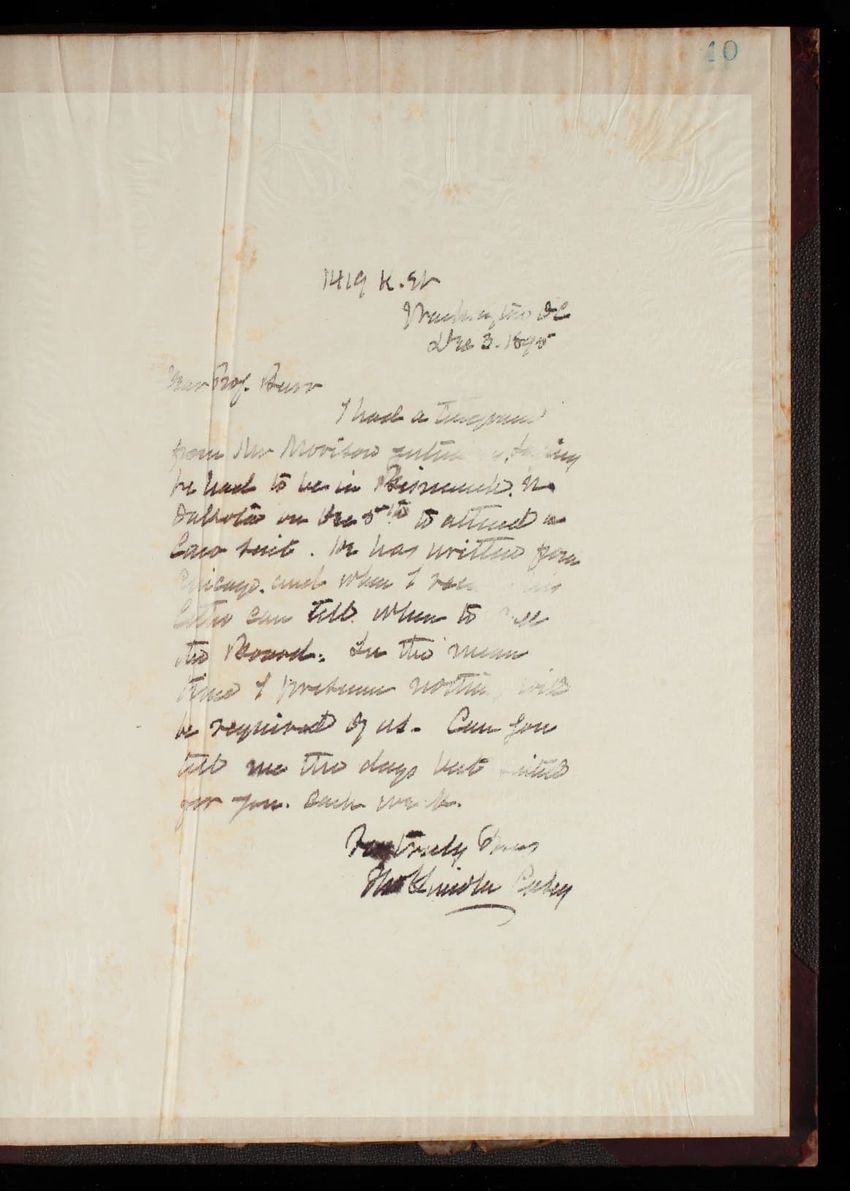 10
1419 K. St
Washington DC
Dec 3. 1895
Dear Prof. Burr
I had a telegram
from Mr Morison saying
he had to be in Bismarck. N.
Dakota on the 5th to attend a
Law suit. He has written from
Chicago. and when I
letter can tell when to
the Board. In the mean
time I presume nothing will
be required of us. Can you
tell me the days best suited
for you. each week.
Very truly Yours
Thos Lincoln Casey